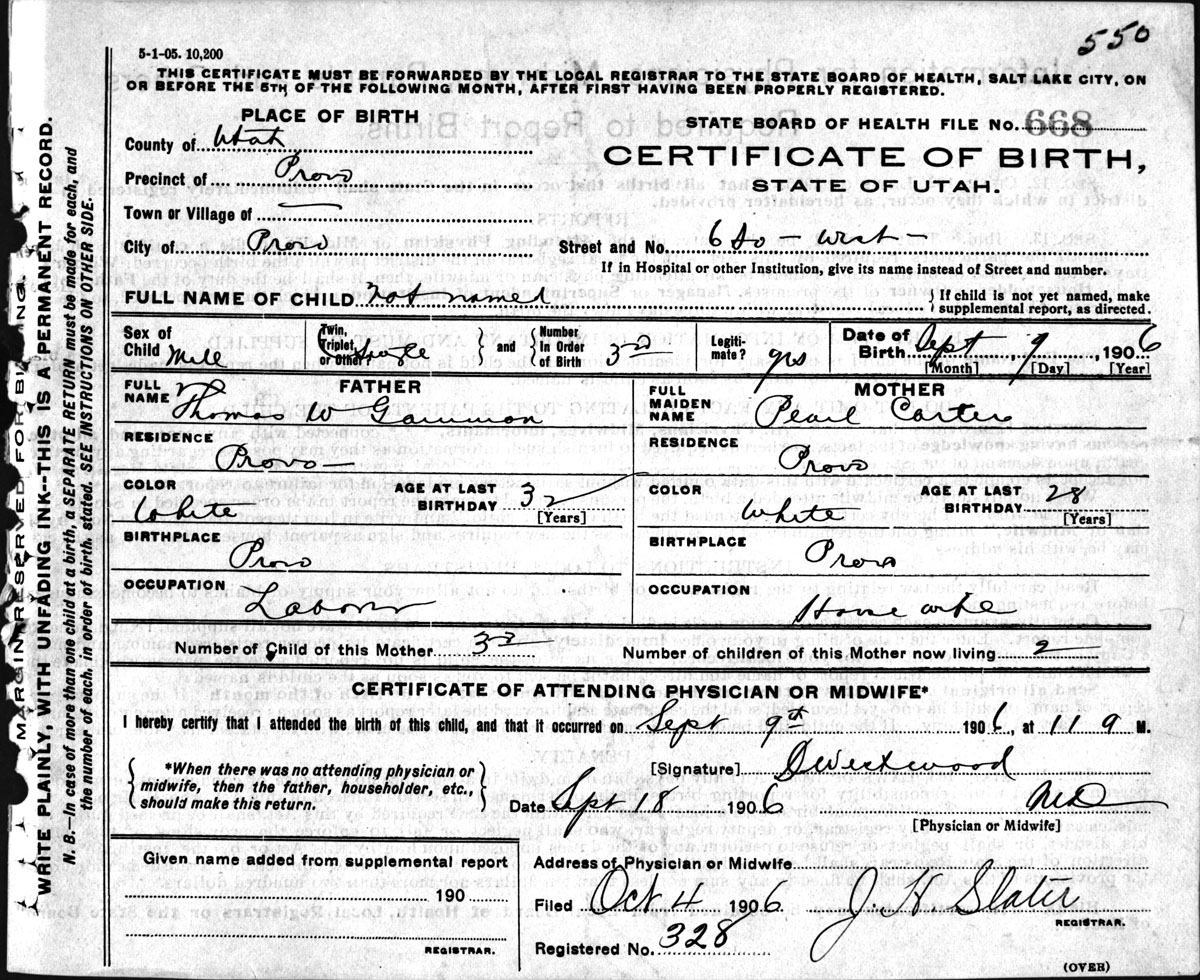 550
5-1-05. 10,200
THIS CERTIFICATE MUST BE FORWARDED BY THE LOCAL REGISTRAR TO THE STATE BOARD OF HEALTH, SALT LAKE CITY, ON
OR BEFORE THE 5TH OF THE FOLLOWING MONTH, AFTER FIRST HAVING BEEN PROPERLY REGISTERED.
PLACE OF BIRTH
County of Utah
Precinct of Provo
Town or Village of
City of Provo
STATE BOARD OF HEALTH FILE No. 668
CERTIFICATE OF BIRTH,
STATE OF UTAH.
Street and No. 6 So - West -
If in Hospital or other Institution, give its name instead of Street and number.
FULL NAME OF CHILD Not named } If child is not yet named, make supplemental report, as directed.
Sex of Child Male
Twin, Triplet, or Other? Single } and { Number in Order of Birth 3rd
Legitimate? yes
Date of Birth Sept 9, 1906
[Month] [Day] [Year]
FATHER
FULL NAME Thomas W Gammon
RESIDENCE Provo
COLOR White AGE AT LAST BIRTHDAY 32 [Years]
BIRTHPLACE Provo
OCCUPATION Laborer
MOTHER
FULL MAIDEN NAME Pearl Carter
RESIDENCE Provo
COLOR White AGE AT LAST BIRTHDAY 28 [Years]
BIRTHPLACE Provo
OCCUPATION House wife
Number of Child of this Mother 3rd Number of children of this Mother now living 2
CERTIFICATE OF ATTENDING PHYSICIAN OR MIDWIFE*
I hereby certify that I attended the birth of this child, and that it occurred on Sept 9th 1906, at 11 a M.
{ *When there was no attending physician or midwife, then the father, householder, etc., should make this return. }
[Signature] D Westwood
Date Sept 18 1906 MD
[Physician or Midwife]
Given name added from supplemental report
190
REGISTRAR.
Address of Physician or Midwife
Filed Oct 4 1906 J. N Slater
REGISTRAR.
Registered No. 328
(OVER)
MARGIN RESERVED FOR BINDING.
WRITE PLAINLY, WITH UNFADING INK--THIS IS A PERMANENT RECORD.
N. B.--In case of more than one child at a birth, a SEPARATE RETURN must be made for each, and
the number of each, in order of birth, stated. SEE INSTRUCTIONS ON OTHER SIDE.